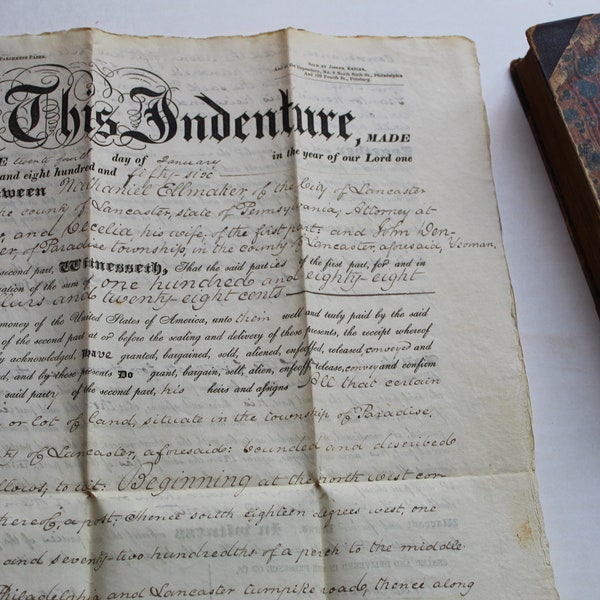 PARCHMENT PAPER.
SOLD BY JOSEPH KEELER,
No. 9 North Sixth St., Philadelphia
This Indenture, MADE
twenty fourth day of January in the year of our Lord one
and eight hundred and fifty-six
Nathaniel Ellmaker of the City of Lancaster
county of Lancaster, state of Pennsylvania, Attorney at
and Cecelia his wife, of the first part, and John Den-
of Paradise township, in the county of Lancaster, aforesaid, Yeoman,
second part, Witnesseth, That the said parties of the first part, for and in
ation of the sum of one hundred and eighty eight
and twenty-eight cents
money of the United States of America, unto them well and truly paid by the said
of the second part at or before the sealing and delivery of these presents, the receipt whereof
acknowledged, Have granted, bargained, sold, aliened, enfeoffed, released, conveyed and
and by these presents Do grant, bargain, sell, alien, enfeoff, release, convey and confirm
said party of the second part, his heirs and assigns All that certain
or lot of land, situate in the township of Paradise,
of Lancaster, aforesaid: bounded and described
to wit: Beginning at the north west cor-
a post; Thence south eighteen degrees west, one
and seventy-two hundredths of a perch to the middle
Philadelphia and Lancaster turnpike road, thence along